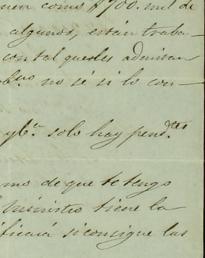 como $700. mil de
algunos, están traba-
con tal que les admitan
no sé si lo con-
solo hay pend.tes
mo de que te tengo
Ministro tiene la
ficará si consigue las